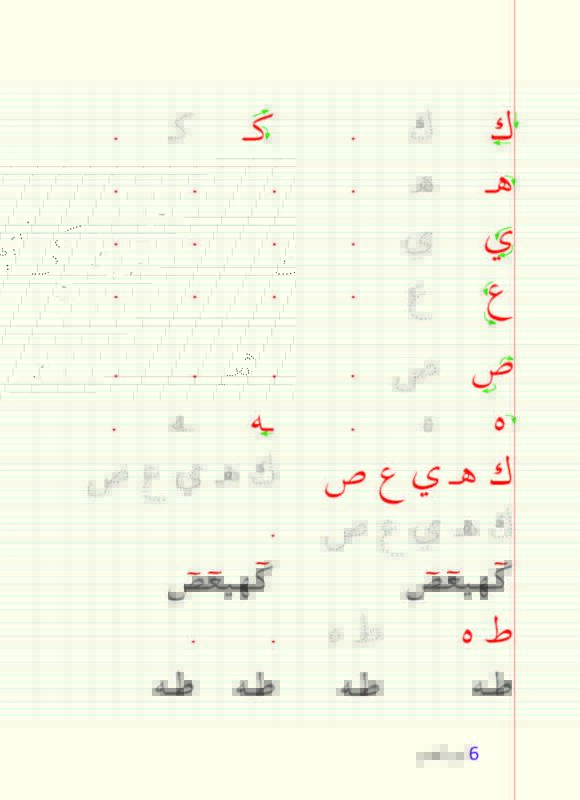 ك ك . كـ كـ .
هـ هـ . . . .
ي ي . . . .
ع ع . . . .
ص ص . . . .
ه ه . ـه ـه .
ك هـ ي ع ص ك هـ ي ع ص
ك هـ ي ع ص .
كٓهيعٓصٓ كٓهيعٓصٓ
ط ه ط ه . .
طه طه طه طه
6